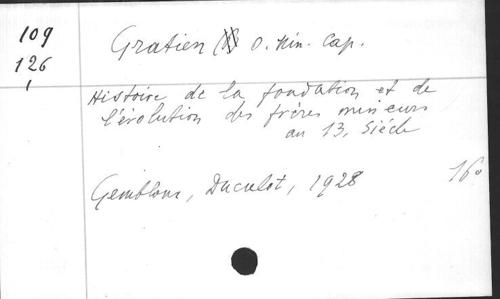 109
126
1
Gratien O. Min. Cap.
Histoire de la fondation et de
l'évolution des frères mineurs
au 13, Siécle
Gembloux, Duculot, 1928
16°